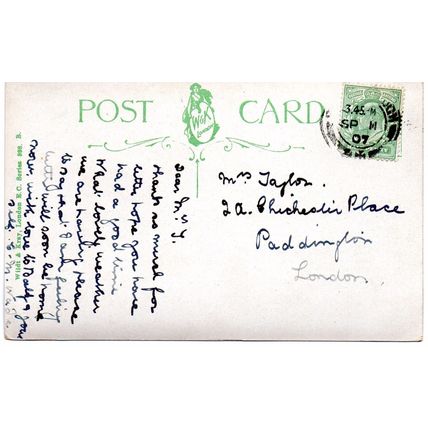 POST CARD
W&K
LONDON
3.45 M
SP 11
07
Dear Mrs T.
thanks so much for
letter hope you have
had a good time
What lovely weather
we are having. Please
to say that I am feeling
better will soon be home
now, with love to
Mrs Taylor.
2A. Chichester Place
Paddington
London.
Wildt & Kray, London E.C. Series 898. B.